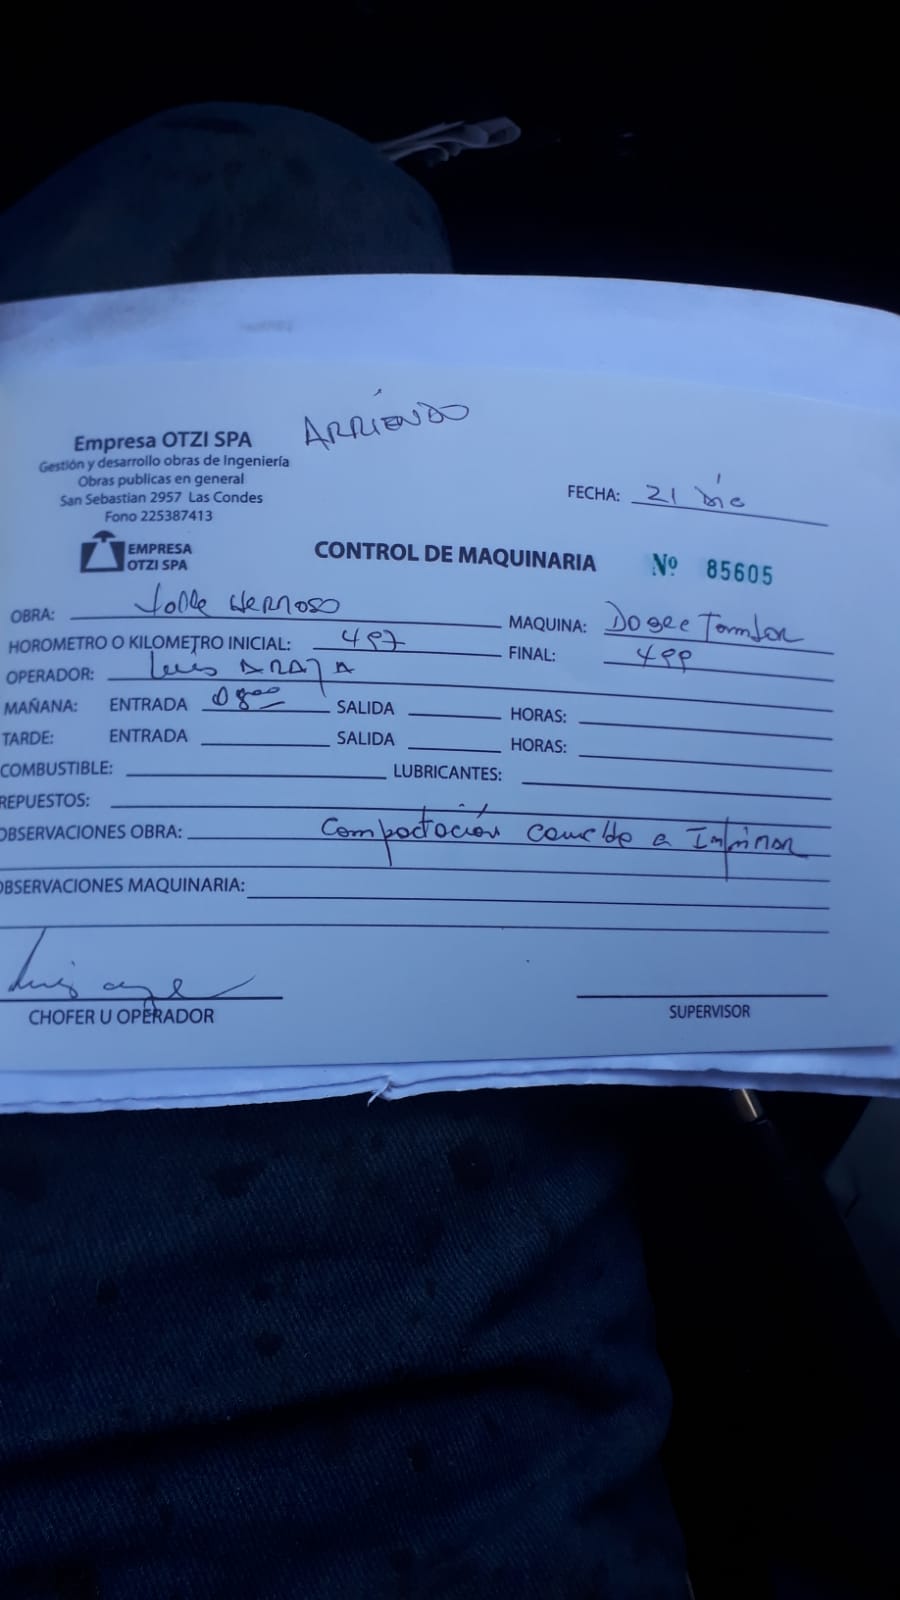 ARRIENDO
Empresa OTZI SPA
Gestión y desarrollo obras de Ingeniería
Obras publicas en general
San Sebastian 2957 Las Condes
Fono 225387413
FECHA: 21 Dic
EMPRESA
OTZI SPA
CONTROL DE MAQUINARIA Nº 85605
OBRA: Valle Hermoso MAQUINA: Tambor
HOROMETRO O KILOMETRO INICIAL: 497 FINAL: 499
OPERADOR: Luis ARAYA
MAÑANA: ENTRADA 0800 SALIDA HORAS:
TARDE: ENTRADA SALIDA HORAS:
COMBUSTIBLE: LUBRICANTES:
REPUESTOS:
OBSERVACIONES OBRA: Compactación a Imprimar
OBSERVACIONES MAQUINARIA:
CHOFER U OPERADOR SUPERVISOR